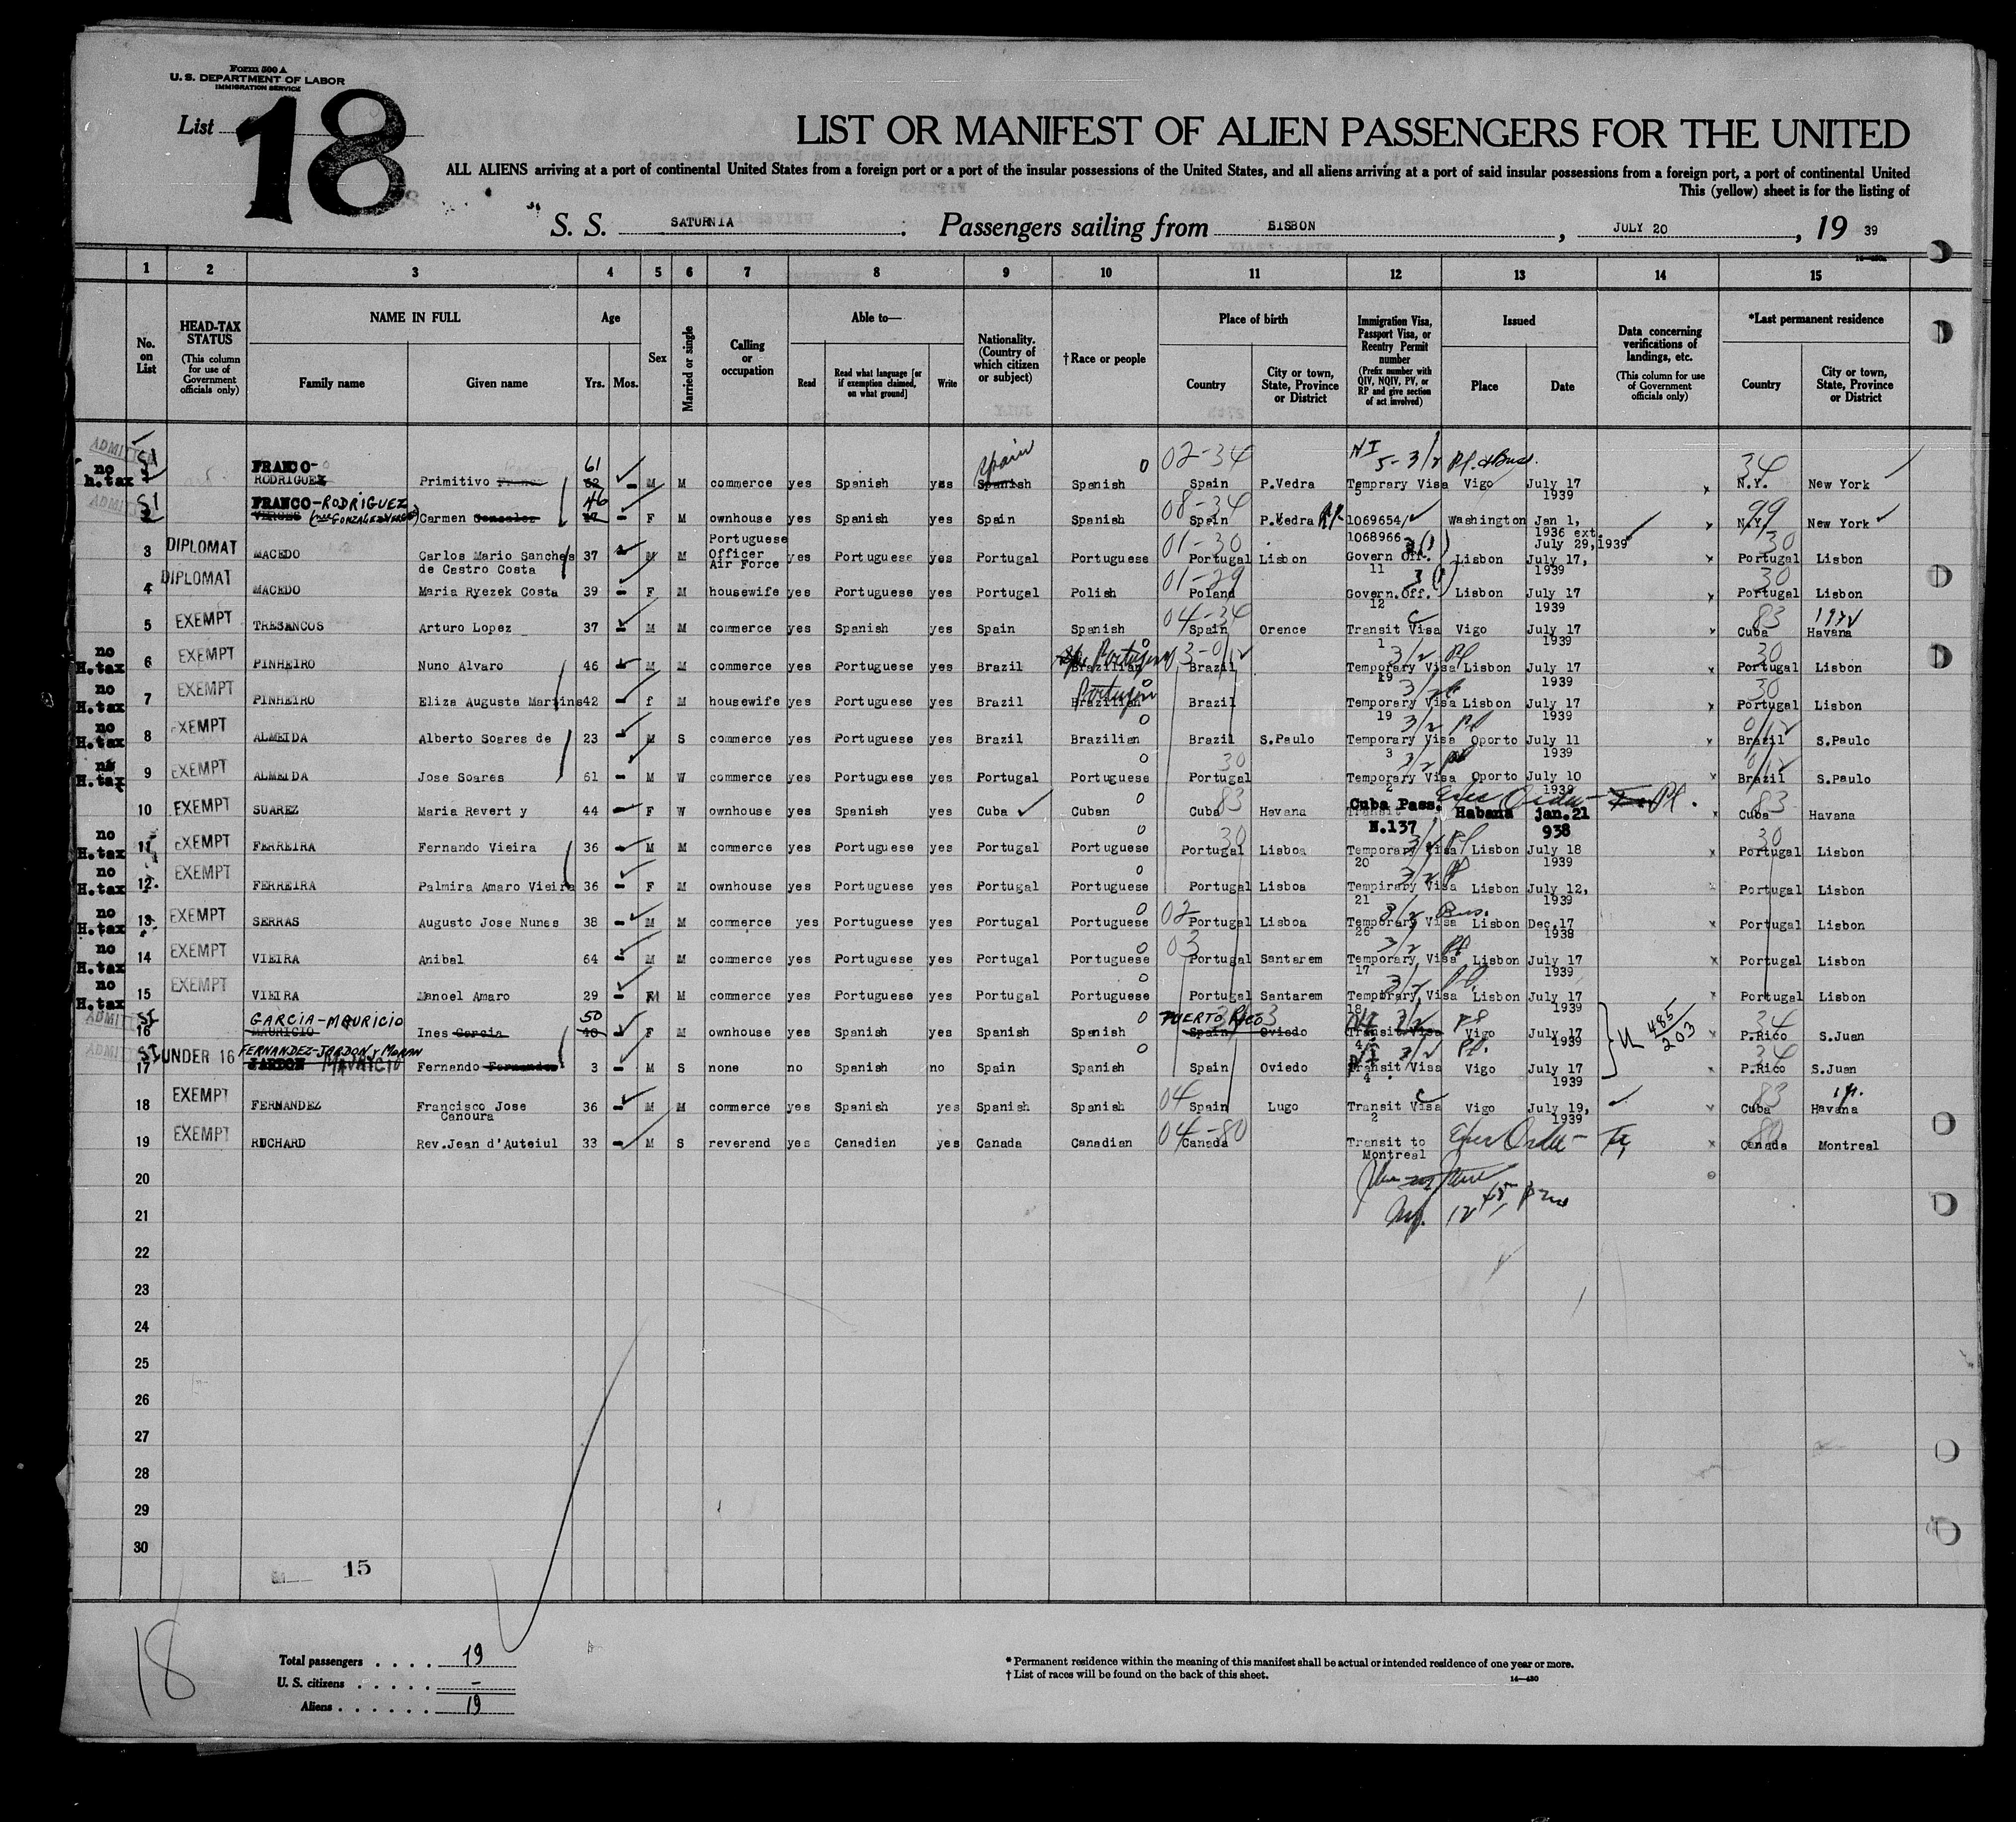 Form 500 A
U. S. DEPARTMENT OF LABOR
IMMIGRATION SERVICE
List 18
LIST OR MANIFEST OF ALIEN PASSENGERS FOR THE UNITED
ALL ALIENS arriving at a port of continental United States from a foreign port or a port of the insular possessions of the United States, and all aliens arriving at a port of said insular possessions from a foreign port, a port of continental United
This (yellow) sheet is for the listing of
S. S. SATURNIA. Passengers sailing from LISBON, JULY 20, 19 39
1 2 3 4 5 6 7 8 9 10 11 12 13 14 15
No. on List
HEAD-TAX STATUS (This column for use of Government officials only)
NAME IN FULL
Family name Given name
Age
Yrs. Mos.
Sex
Married or single
Calling or occupation
Able to—
Read Read what language [or if exemption claimed, on what ground] Write
Nationality. (Country of which citizen or subject)
†Race or people
Place of birth
Country City or town, State, Province or District
Immigration Visa, Passport Visa, or Reentry Permit number (Prefix number with QIV, NQIV, PV, or RP and give section of act involved)
Issued
Place Date
Data concerning verifications of landings, etc. (This column for use of Government officials only)
*Last permanent residence
Country City or town, State, Province or District
ADMITTED no h.tax S1 1 FRANCO-RODRIGUEZ Primitivo Franco 61 62 M M commerce yes Spanish yes Spain Spanish Spanish 02-34 Spain P.Vedra NI 5-3/2 Pl. & Bus. Temprary Visa 5 Vigo July 17 1939 34 N.Y. New York
ADMITTED S1 2 FRANCO-RODRIGUEZ VERGES (née GONZALEZ VERGES) Carmen Gonzalez 46 F M ownhouse yes Spanish yes Spain Spanish 08-34 Spain P.Vedra RP 1069654 1068966 Washington Jan 1, 1936 ext. July 29,1939 99 N.Y. New York
3 DIPLOMAT MACEDO Carlos Mario Sanches de Castro Costa 37 M M Portuguese Officer Air Force yes Portuguese yes Portugal Portuguese 01-30 Portugal Lisbon Govern Off. 11 Lisbon July 17, 1939 30 Portugal Lisbon
4 DIPLOMAT MACEDO Maria Ryezek Costa 39 F M housewife yes Portuguese yes Portugal Polish 01-29 Poland Govern.Off. 12 Lisbon July 17 1939 30 Portugal Lisbon
5 EXEMPT TRESANCOS Arturo Lopez 37 M M commerce yes Spanish yes Spain Spanish 04-34 Spain Orence Transit Visa 1 Vigo July 17 1939 83 Cuba Havana
no H.tax 6 EXEMPT PINHEIRO Nuno Alvaro 46 M M commerce yes Portuguese yes Brazil Brazilian Brazil 3/2 Pl Temporary Visa 19 Lisbon July 17 1939 30 Portugal Lisbon
no H.tax 7 EXEMPT PINHEIRO Eliza Augusta Martins 42 f M housewife yes Portuguese yes Brazil Brazilian Brazil 3/2 Temporary Visa 19 Lisbon July 17 1939 30 Portugal Lisbon
no H.tax 8 EXEMPT ALMEIDA Alberto Soares de 23 M S commerce yes Portuguese yes Brazil Brazilian Brazil S.Paulo 3/2 Pl Temporary Visa 3 Oporto July 11 1939 Brazil S.Paulo
no H.tax 9 EXEMPT ALMEIDA Jose Soares 61 M W commerce yes Portuguese yes Portugal Portuguese 30 Portugal 3/2 Temporary Visa 2 Oporto July 10 1939 Brazil S.Paulo
10 EXEMPT SUAREZ Maria Revert y 44 F W ownhouse yes Spanish yes Cuba Cuban 83 Cuba Havana Transit Cuba Pass. N.137 Habana jan.21 938 83 Cuba Havana
no H.tax 11 EXEMPT FERREIRA Fernando Vieira 36 M M commerce yes Portuguese yes Portugal Portuguese 30 Portugal Lisboa 3/2 Pl Temporary Visa 20 Lisbon July 18 1939 30 Portugal Lisbon
no H.tax 12 EXEMPT FERREIRA Palmira Amaro Vieira 36 F M ownhouse yes Portuguese yes Portugal Portuguese Portugal Lisboa 3/2 Tempirary Visa 21 Lisbon July 12, 1939 Portugal Lisbon
no H.tax 13 EXEMPT SERRAS Augusto Jose Nunes 38 M M commerce yes Portuguese yes Portugal Portuguese 02 Portugal Lisboa 3/2 Bus. Temporary Visa 26 Lisbon Dec,17 1938 Portugal Lisbon
no H.tax 14 EXEMPT VIEIRA Anibal 64 M M commerce yes Portuguese yes Portugal Portuguese 03 Portugal Santarem 3/2 Pl Temporary Visa 17 Lisbon July 17 1939 Portugal Lisbon
no H.tax 15 EXEMPT VIEIRA Manoel Amaro 29 M M commerce yes Portuguese yes Portugal Portuguese Portugal Santarem 3/2 Pl. Temporary Visa 18 Lisbon July 17 1939 Portugal Lisbon
ADMITTED SI 16 GARCIA-MAURICIO MAURICIO Ines Garcia 50 40 F M ownhouse yes Spanish yes Spanish Spanish PUERTO RICO Spain Oviedo 3/2 Transit Visa 4 Vigo July 17 1939 485/203 34 P.Rico S.Juan
ADMITTED SI 17 UNDER 16 FERNANDEZ-JARDON y MORAN JARDON MAURICIO Fernando Fernandez 3 M S none no Spanish no Spain Spanish Spain Oviedo 3/2 Pl. Transit Visa 4 Vigo July 17 1939 34 P.Rico S.Juan
18 EXEMPT FERNANDEZ Francisco Jose Canoura 36 M M commerce yes Spanish yes Spanish Spanish 04 Spain Lugo Transit Visa 2 Vigo July 19, 1939 83 Cuba Havana
19 EXEMPT RUCHARD Rev.Jean d'Auteiul 33 M S reverend yes Canadian yes Canada Canadian 04-80 Canada Transit to Montreal Exec Order 80 Canada Montreal
20
21
22
23
24
25
26
27
28
29
30
15
18
Total passengers . . . . 19
U. S. citizens . . . . . –
Aliens . . . . . . 19
* Permanent residence within the meaning of this manifest shall be actual or intended residence of one year or more.
† List of races will be found on the back of this sheet.
14—430